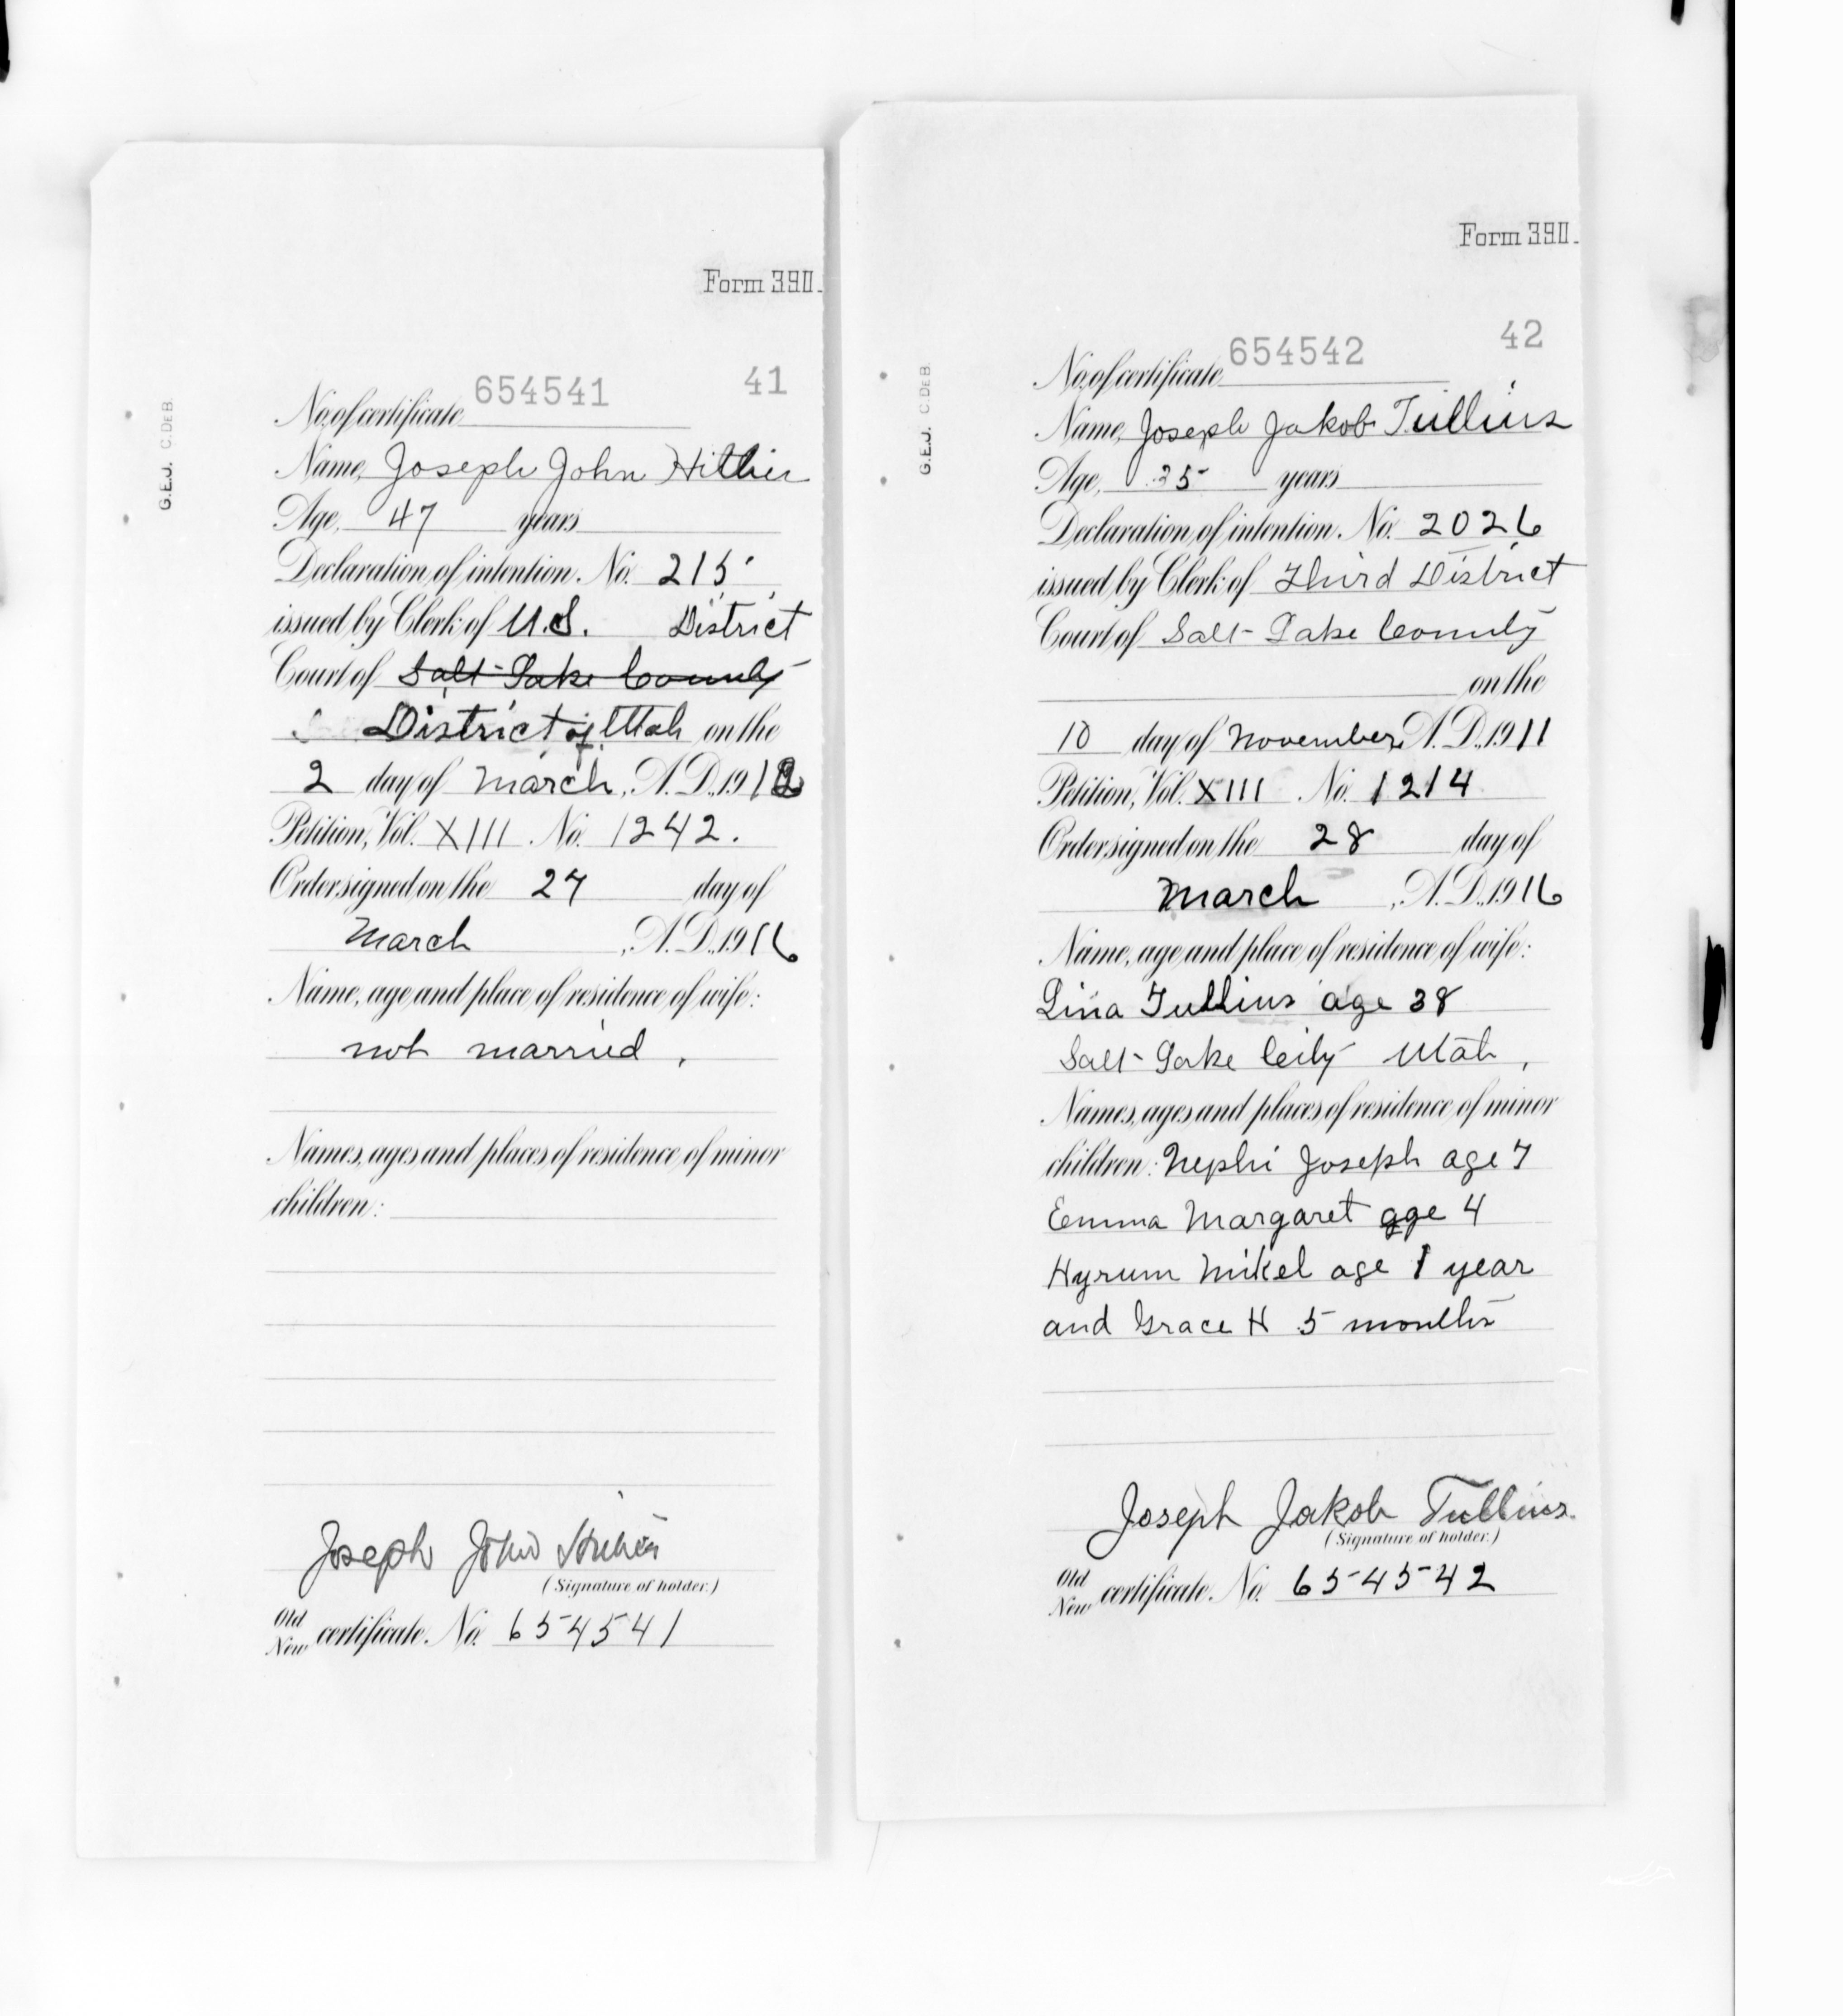 Form 390.
654541 41
No. of certificate
Name, Joseph John Hillier
Age, 47 years
Declaration of intention. No. 215
issued by Clerk of U.S. District
Court of Salt Lake County
District of Utah on the
2 day of March, A.D. 1912
Petition, Vol. XIII No. 1242.
Order signed on the 27 day of
March, A.D. 1916
Name, age and place of residence of wife:
not married.
Names, ages and places of residence of minor
children:
Joseph John Hillier
(Signature of holder.)
Old
New certificate. No. 654541
G.E.J. C.DEB.
Form 390.
654542 42
No. of certificate
Name, Joseph Jakob Tullius
Age, 35 years
Declaration of intention. No. 2026
issued by Clerk of Third District
Court of Salt Lake County
on the
10 day of November, A.D. 1911
Petition, Vol. XIII No. 1214
Order signed on the 28 day of
March, A.D. 1916
Name, age and place of residence of wife:
Lina Tullius age 38
Salt Lake City Utah,
Names, ages and places of residence of minor
children: Nephi Joseph age 7
Emma Margaret age 4
Hyrum Mikel age 1 year
and Grace H 5 months
Joseph Jakob Tullius.
(Signature of holder.)
Old
New certificate. No. 654542
G.E.J. C.DEB.